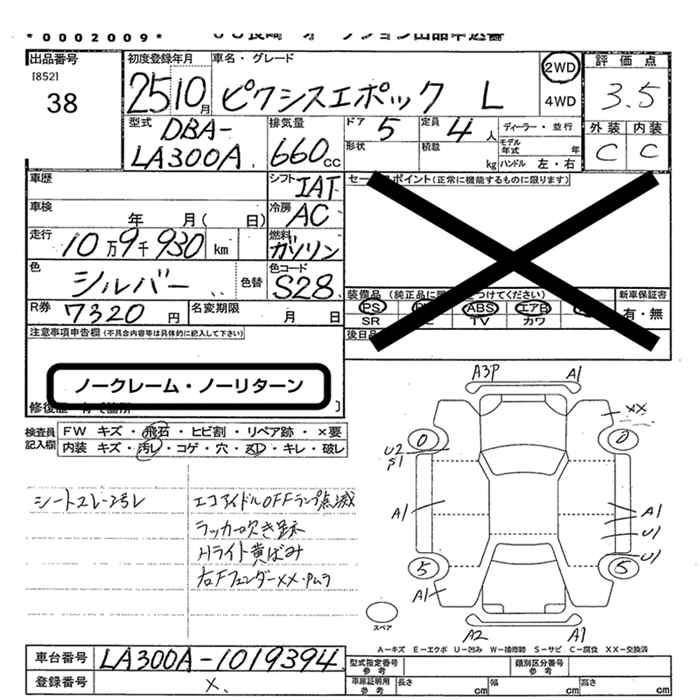 *0002009*
出品番号
[852]
38
初度登録年月
25 10月
車名・グレード
ピクシスエポック L
2WD
4WD
評価点
3.5
外装 内装
C C
型式
DBA-
LA300A
排気量
660cc
ドア 5
形状
定員 4人
積載 kg
ディーラー・並行
モデル年式 年
ハンドル 左・右
車歴
シフト IAT
車検 年 月( 日)
冷房 AC
走行 10万9千930 km
燃料 ガソリン
色 シルバー 色替
色コード S28
R券 7320円
名変期限 月 日
ポイント(正常に機能するものに限ります)
装備品
PS ABS エアB
SR TV カワ
新車保証書
有・無
注意事項申告欄(不具合内容等は具体的に記入して下さい)
ノークレーム・ノーリターン
検査員記入欄
FW キズ・飛石・ヒビ割・リペア跡・×要
内装 キズ・汚レ・コゲ・穴・・キレ・破レ
エコアイドルOFFランプ点滅
ラッカー吹き跡
Hライト黄ばみ
右FフェンダーXX・Pムラ
A3P A1
XX
0 0
U2
S1
A1 A1
U1
U1
5 5
A1
A2 A1
スペア
A-キズ E-エクボ U-凹み W-補修跡 S-サビ C-腐食 XX-交換済
車台番号 LA300A-1019394
登録番号 X.
型式指定番号
参考
類別区分番号
参考
車庫証明用
参考
長さ cm 幅 cm 高さ cm